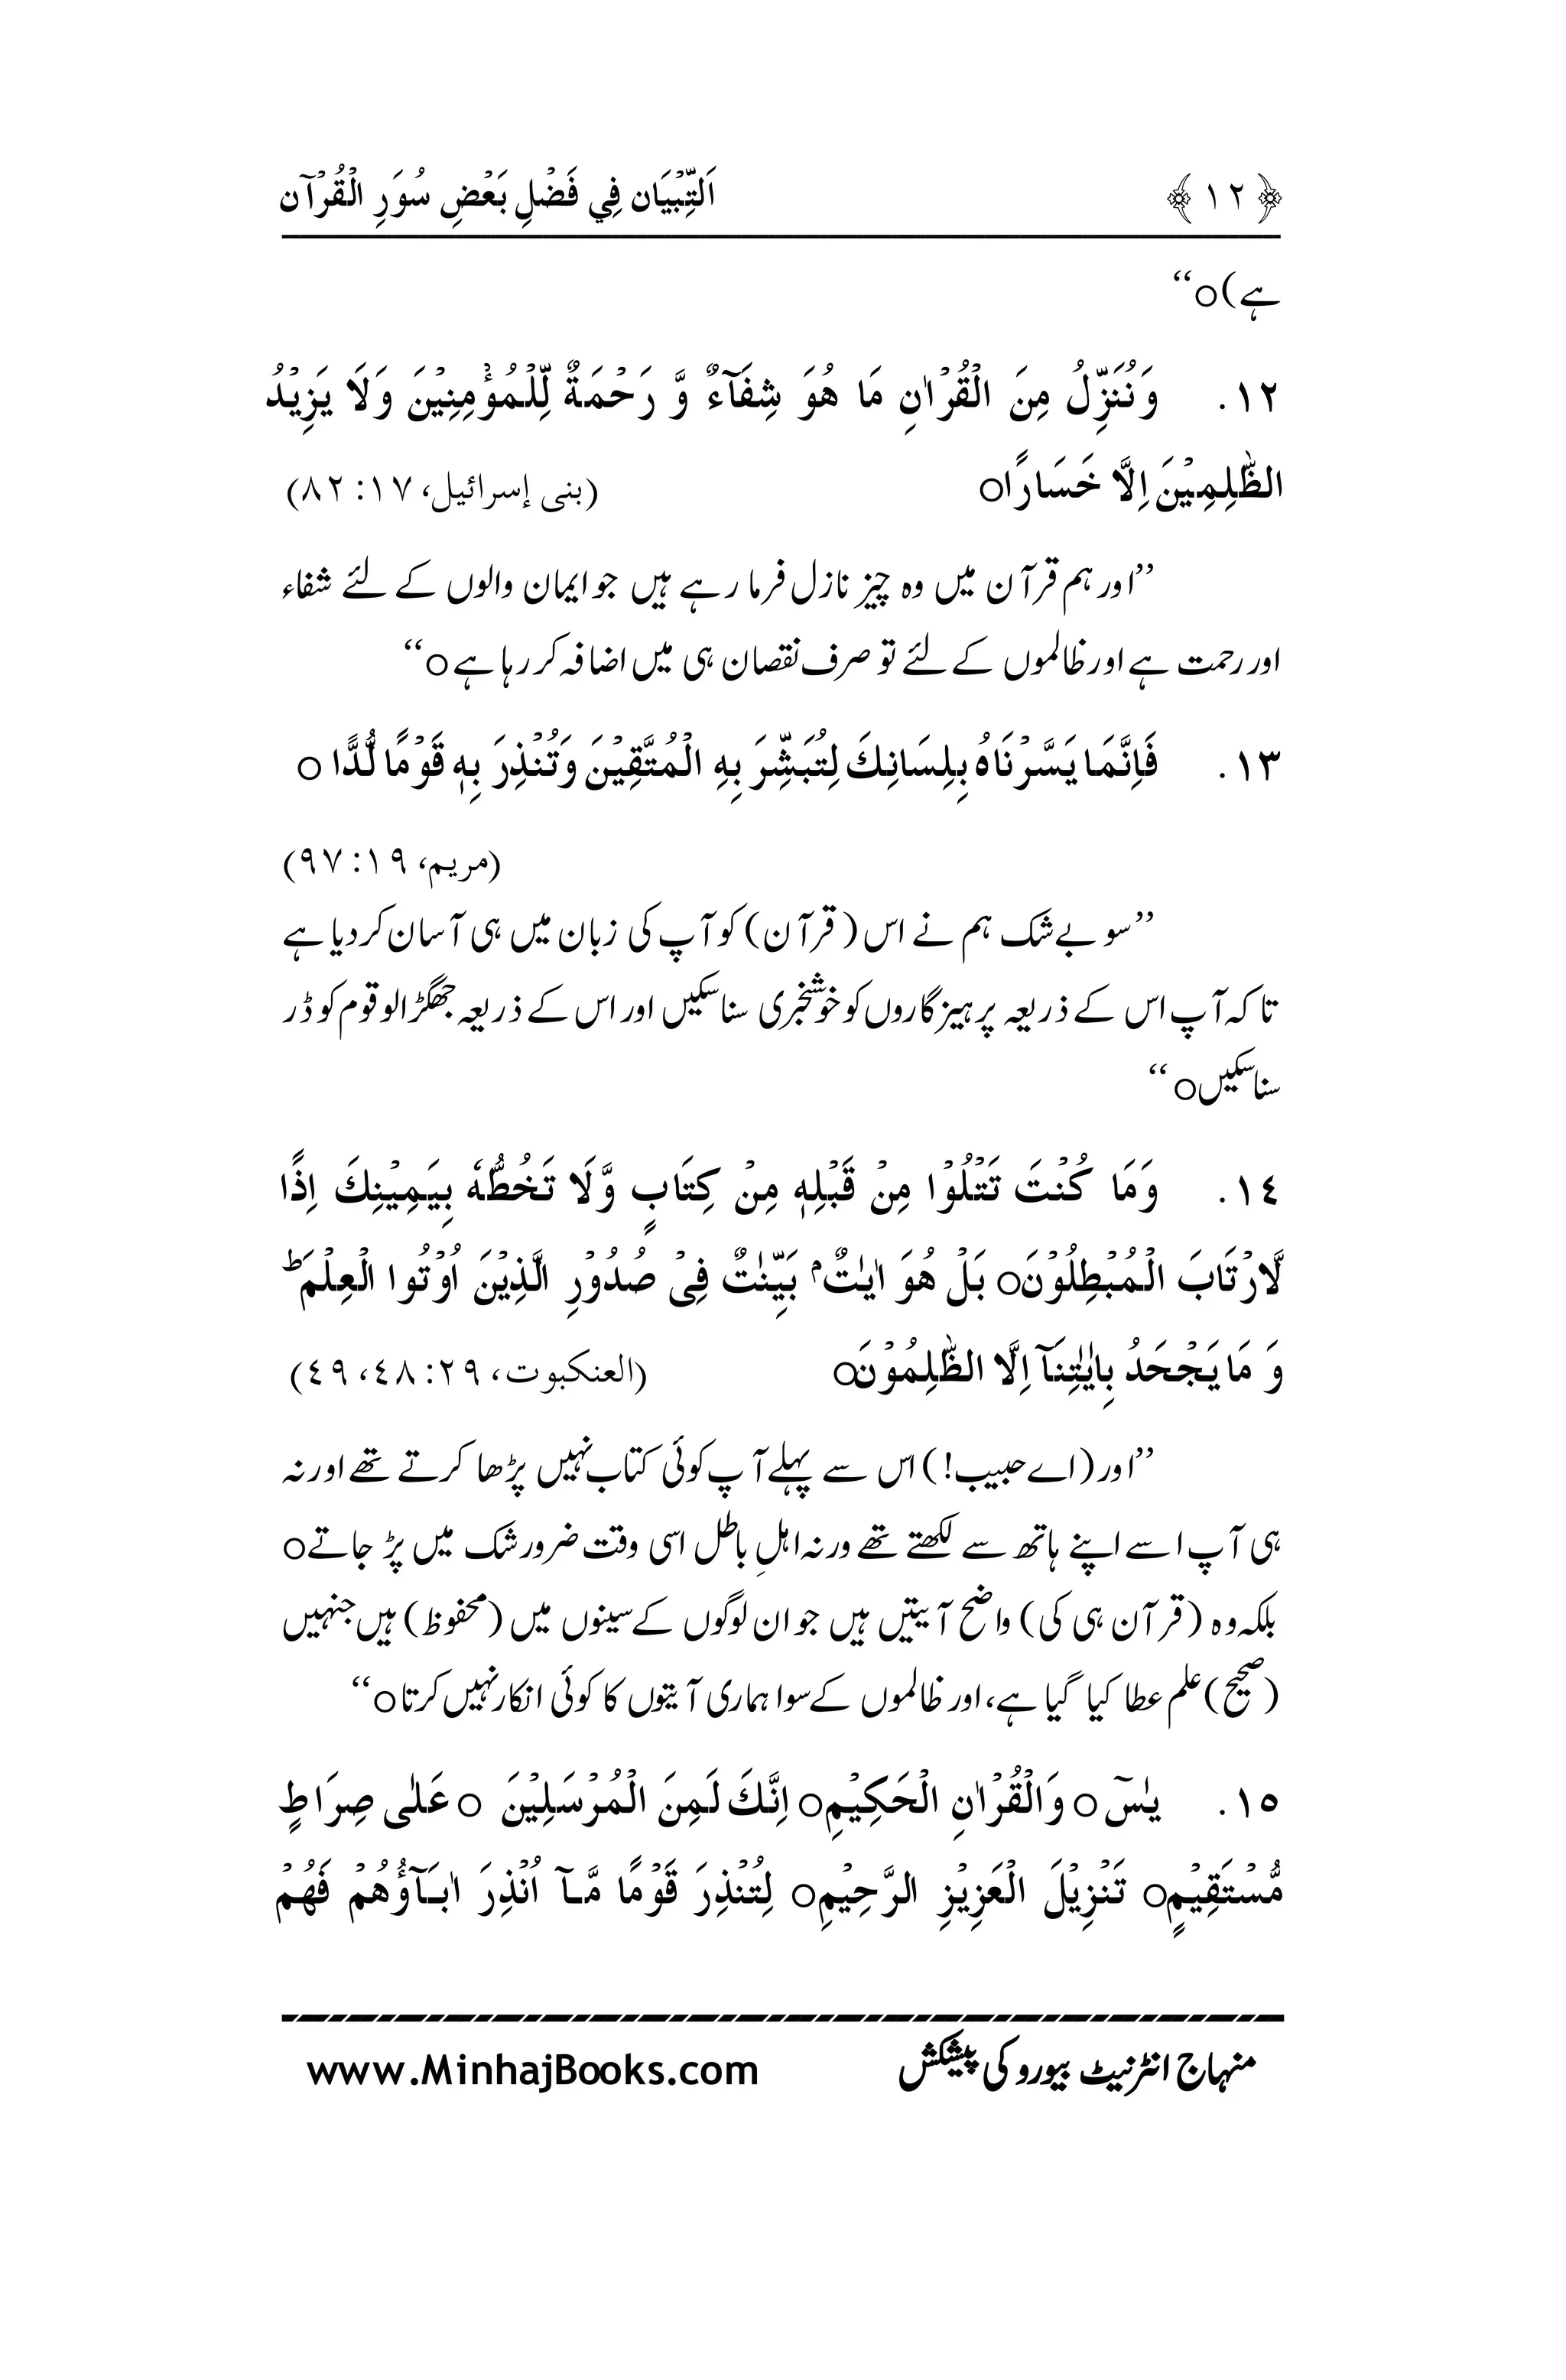 ﴿ ١٢ ﴾ اَلتِّبْيَان فِي فَضْلِ بَعْضِ سُوَرِ الْقُرْآن
ہے)o‘‘
١٢. وَنُنَزِّلُ مِنَ الْقُرْاٰنِ مَا هُوَ شِفَآءٌ وَّ رَحْمَةٌ لِّلْمُؤْمِنِيْنَ وَلَا يَزِيْدُ
الظّٰلِمِيْنَ اِلَّا خَسَارًاo (بنی إسرائيل، ١٧: ٨٢)
’’اور ہم قرآن میں وہ چیز نازل فرما رہے ہیں جو ایمان والوں کے لئے شفاء
اور رحمت ہے اور ظالموں کے لئے تو صرف نقصان ہی میں اضافہ کر رہا ہےo‘‘
١٣. فَاِنَّمَا يَسَّرْنَاهُ بِلِسَانِكَ لِتُبَشِّرَ بِهِ الْمُتَّقِيْنَ وَتُنْذِرَ بِهٖ قَوْمًا لُّدًّا o
(مريم، ١٩: ٩٧)
’’سو بے شک ہم نے اس (قرآن) کو آپ کی زبان میں ہی آسان کر دیا ہے
تاکہ آپ اس کے ذریعہ پرہیزگاروں کو خوشخبری سنا سکیں اور اس کے ذریعہ جھگڑالو قوم کو ڈر
سنا سکیںo‘‘
١٤. وَمَا كُنْتَ تَتْلُوْا مِنْ قَبْلِهٖ مِنْ كِتَابٍ وَّلَا تَخُطُّهٗ بِيَمِيْنِكَ اِذًا
لَّارْتَابَ الْمُبْطِلُوْنَo بَلْ هُوَ اٰيٰتٌۢ بَيِّنٰتٌ فِىْ صُدُوْرِ الَّذِيْنَ اُوْتُوا الْعِلْمَ ؕ
وَ مَا يَجْحَدُ بِاٰيٰتِنَآ اِلَّا الظّٰلِمُوْنَo (العنكبوت، ٢٩: ٤٨، ٤٩)
’’اور (اے حبیب!) اس سے پہلے آپ کوئی کتاب نہیں پڑھا کرتے تھے اور نہ
ہی آپ اسے اپنے ہاتھ سے لکھتے تھے ورنہ اہلِ باطل اسی وقت ضرور شک میں پڑ جاتےo
بلکہ وہ (قرآن ہی کی) واضح آیتیں ہیں جو ان لوگوں کے سینوں میں (محفوظ) ہیں جنہیں
(صحیح) علم عطا کیا گیا ہے، اور ظالموں کے سوا ہماری آیتوں کا کوئی انکار نہیں کرتاo‘‘
١٥. يٰسٓ o وَالْقُرْاٰنِ الْحَكِيْمِo اِنَّكَ لَمِنَ الْمُرْسَلِيْنَ o عَلٰى صِرَاطٍ
مُّسْتَقِيْمٍo تَنْزِيْلَ الْعَزِيْزِ الرَّحِيْمِo لِتُنْذِرَ قَوْمًا مَّآ اُنْذِرَ اٰبَآؤُهُمْ فَهُمْ
منہاج انٹرنیٹ بیورو کی پیشکش www.MinhajBooks.com